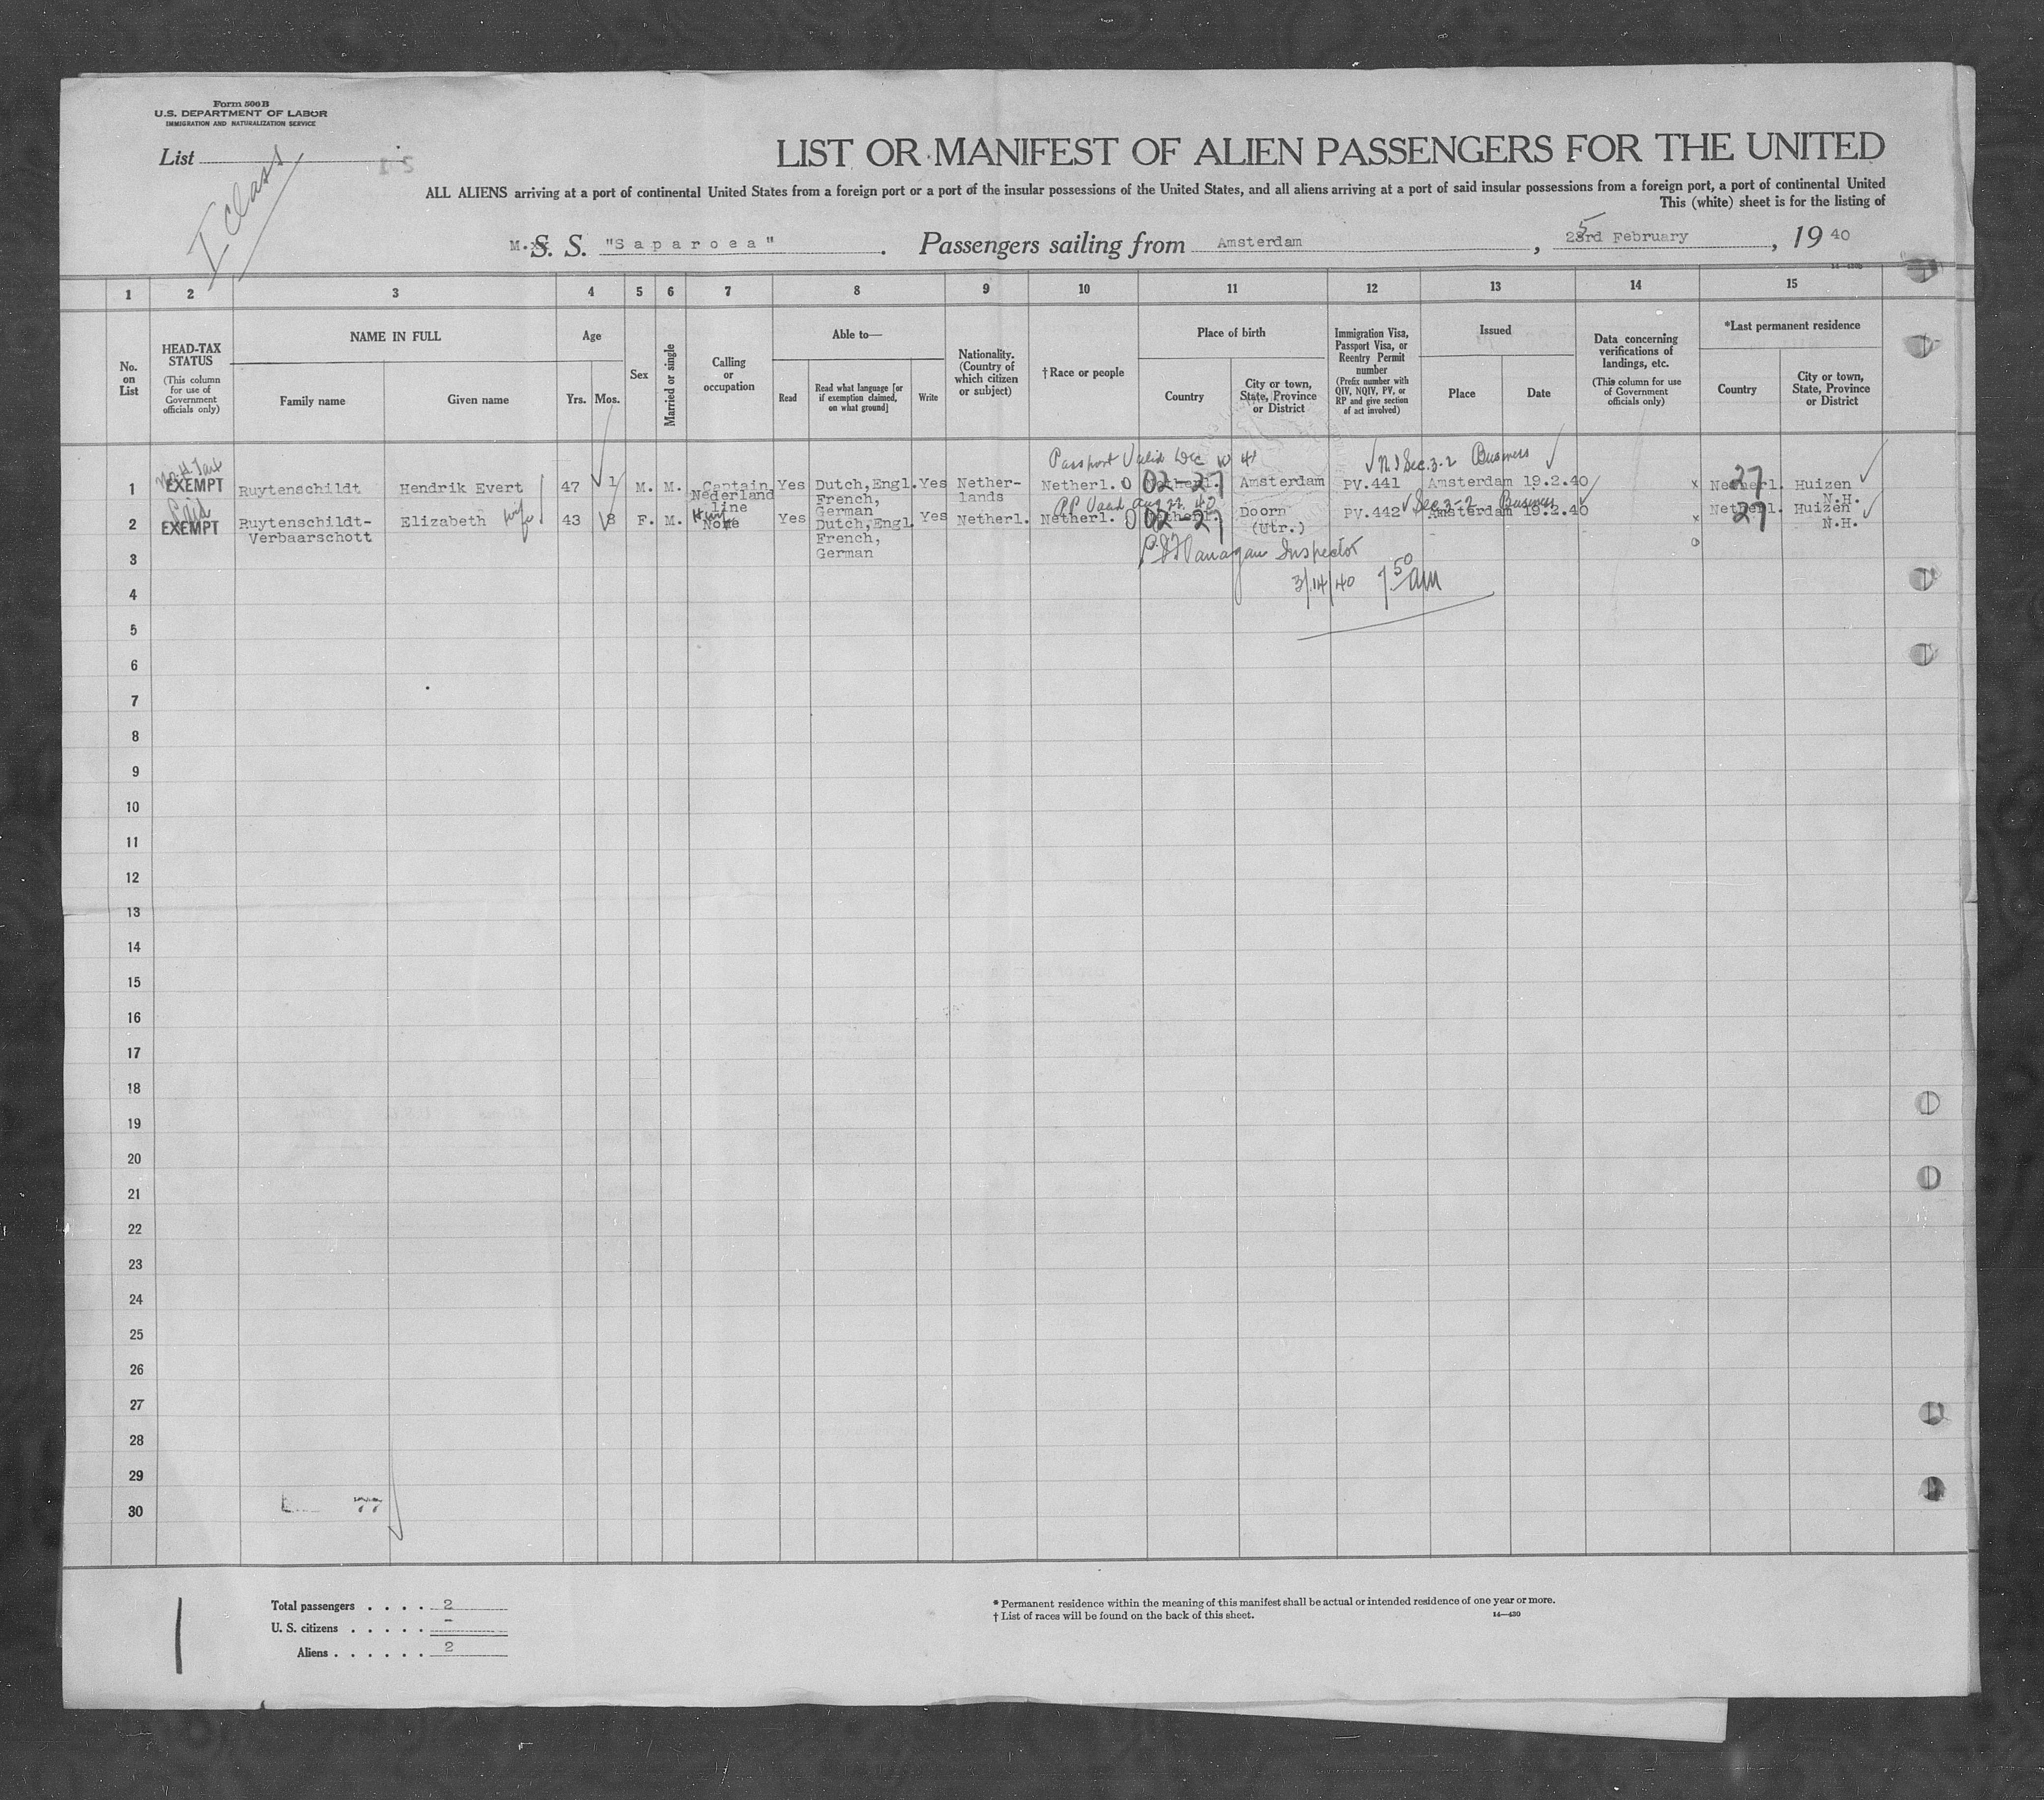 Form 500 B
U.S. DEPARTMENT OF LABOR
IMMIGRATION AND NATURALIZATION SERVICE
List
I class
LIST OR MANIFEST OF ALIEN PASSENGERS FOR THE UNITED
ALL ALIENS arriving at a port of continental United States from a foreign port or a port of the insular possessions of the United States, and all aliens arriving at a port of said insular possessions from a foreign port, a port of continental United
This (white) sheet is for the listing of
M. S. S. "Saparoea". Passengers sailing from Amsterdam, 25rd February, 1940
1 2 3 4 5 6 7 8 9 10 11 12 13 14 15
No. on List
HEAD-TAX STATUS
(This column for use of Government officials only)
NAME IN FULL
Family name Given name
Age
Yrs. Mos.
Sex
Married or single
Calling or occupation
Able to—
Read
Read what language [or if exemption claimed, on what ground]
Write
Nationality. (Country of which citizen or subject)
†Race or people
Place of birth
Country
City or town, State, Province or District
Immigration Visa, Passport Visa, or Reentry Permit number
(Prefix number with QIV, NQIV, PV, or RP and give section of act involved)
Issued
Place Date
Data concerning verifications of landings, etc.
(This column for use of Government officials only)
*Last permanent residence
Country
City or town, State, Province or District
Passport Valid Dec 10 41 Sec. 3-2 Business
1 EXEMPT Ruytenschildt Hendrik Evert 47 1 M. M. Captain Nederland line Yes Dutch, Engl. French, German Yes Netherlands Netherl. 02 27 Netherl. Amsterdam PV.441 Amsterdam 19.2.40 x Netherl. 27 Huizen N.H.
PP Valid Aug 22 40 Sec 3-2 Business
2 Paid EXEMPT Ruytenschildt-Verbaarschott Elizabeth wife 43 8 F. M. None Yes Dutch, Engl. French, German Yes Netherl. Netherl. 02 27 Netherl. Doorn (Utr.) PV.442 Amsterdam 19.2.40 x Netherl. 27 Huizen N.H.
3
Flanagan Inspector
3/14/40 7 50 am
4
5
6
7
8
9
10
11
12
13
14
15
16
17
18
19
20
21
22
23
24
25
26
27
28
29
30
77
Total passengers . . . . 2
U. S. citizens . . . . . –
Aliens . . . . . . 2
* Permanent residence within the meaning of this manifest shall be actual or intended residence of one year or more.
† List of races will be found on the back of this sheet.
14—430